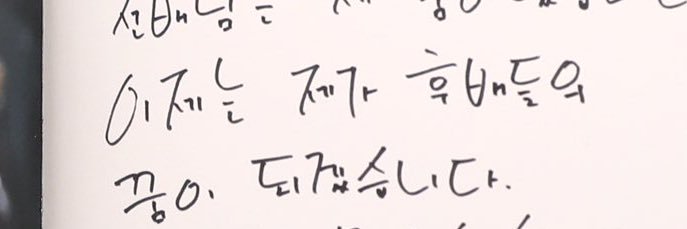 선배님은
이제는 제가 후배들의
꿈이 되겠습니다.